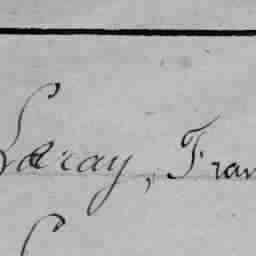 Leray, Fran